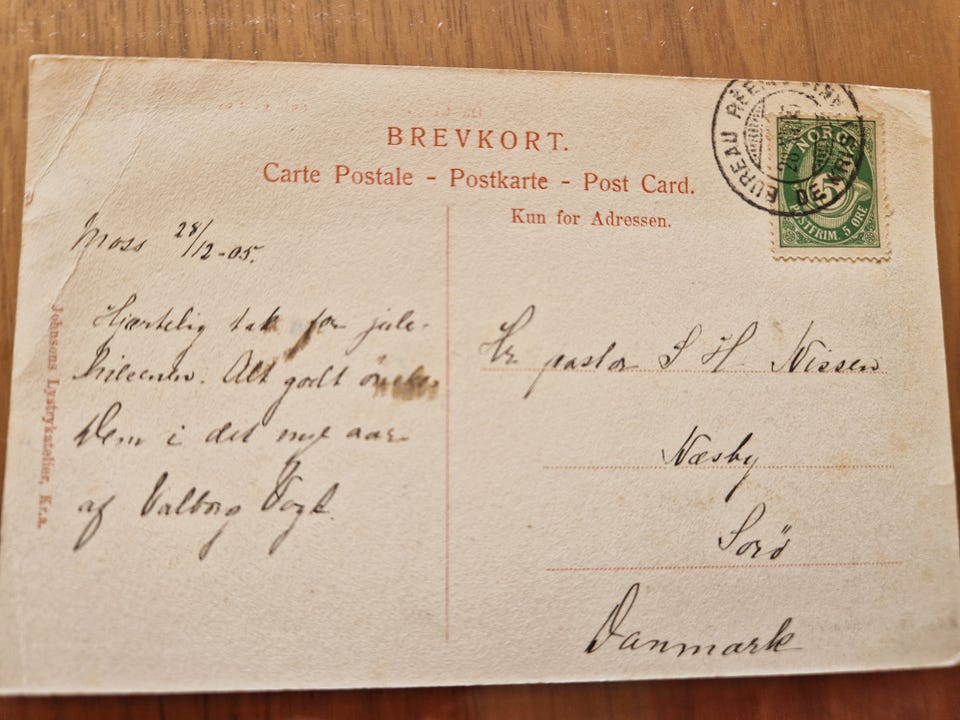 BREVKORT.
Carte Postale - Postkarte - Post Card.
Kun for Adressen.
BUREAU RÉEXP
DE KRIS
NORGE
5
POSTFRIM. 5 ØRE
Moss 28/12-05.
Hjærtelig tak for jule-
hilsenen. Alt godt ønskes
Dem i det nye aar
af Valborg Vogt.
Hr pastor S H Nissen
Næsby
Sorö
Danmark
Johnsons Lystrykatelier, Kr.a.